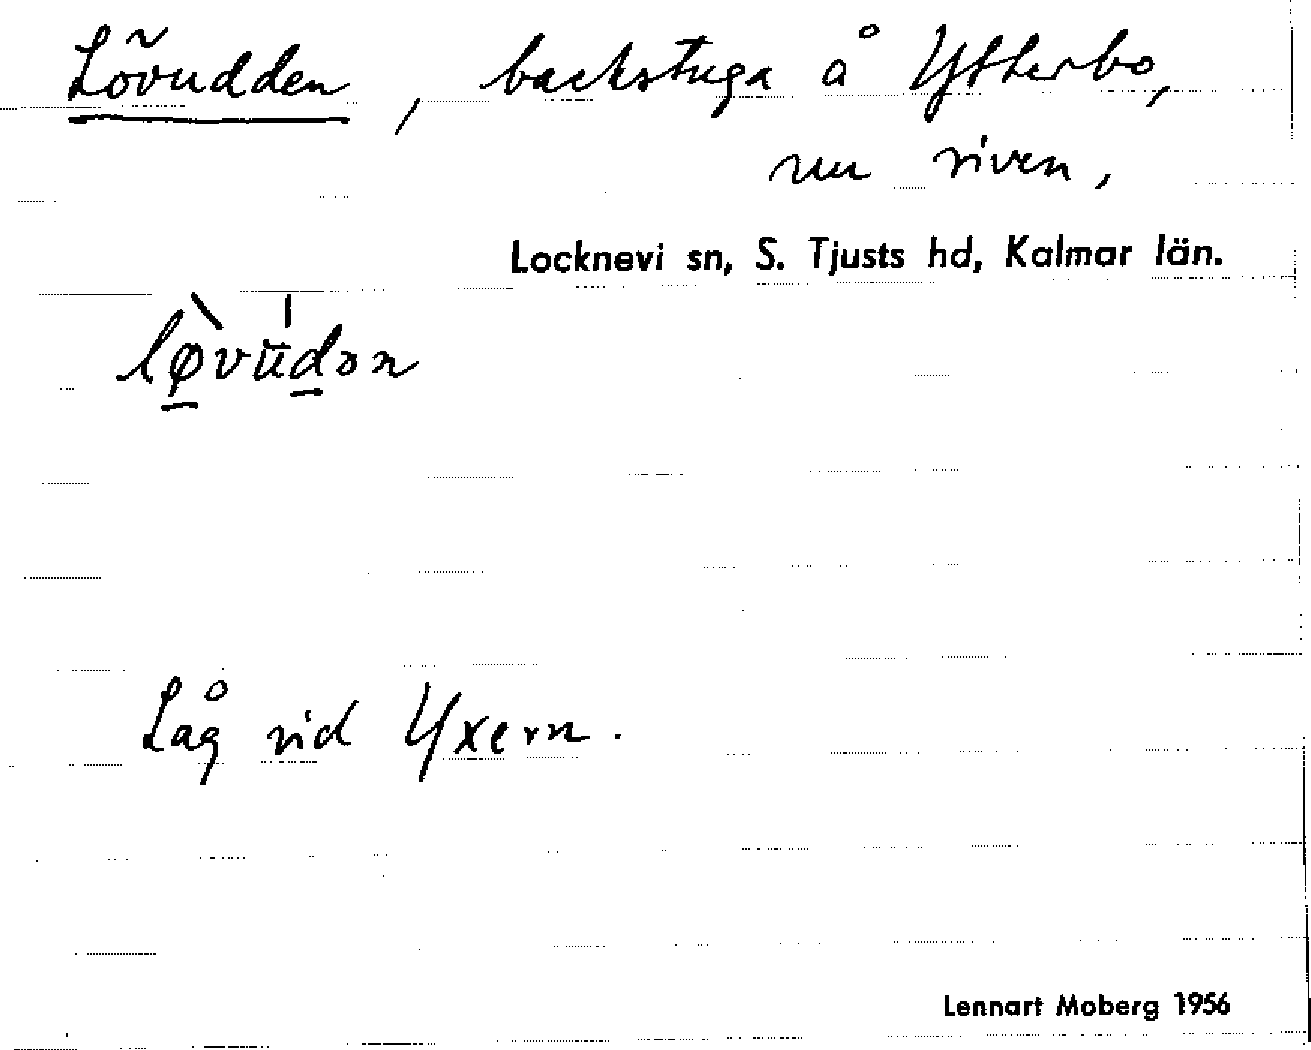 Lövudden, backstuga å Ytterbo,
nu riven,
Locknevi sn, S. Tjusts hd, Kalmar län.
lø̱̀vŭḏən
Låg vid Yxern.
Lennart Moberg 1956